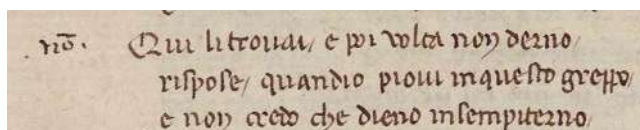 nō. Qui li trovai/ e poi volta non derno/
rispose/ quandio piovi in questo greppo/
e non credo che dieno in sempiterno/